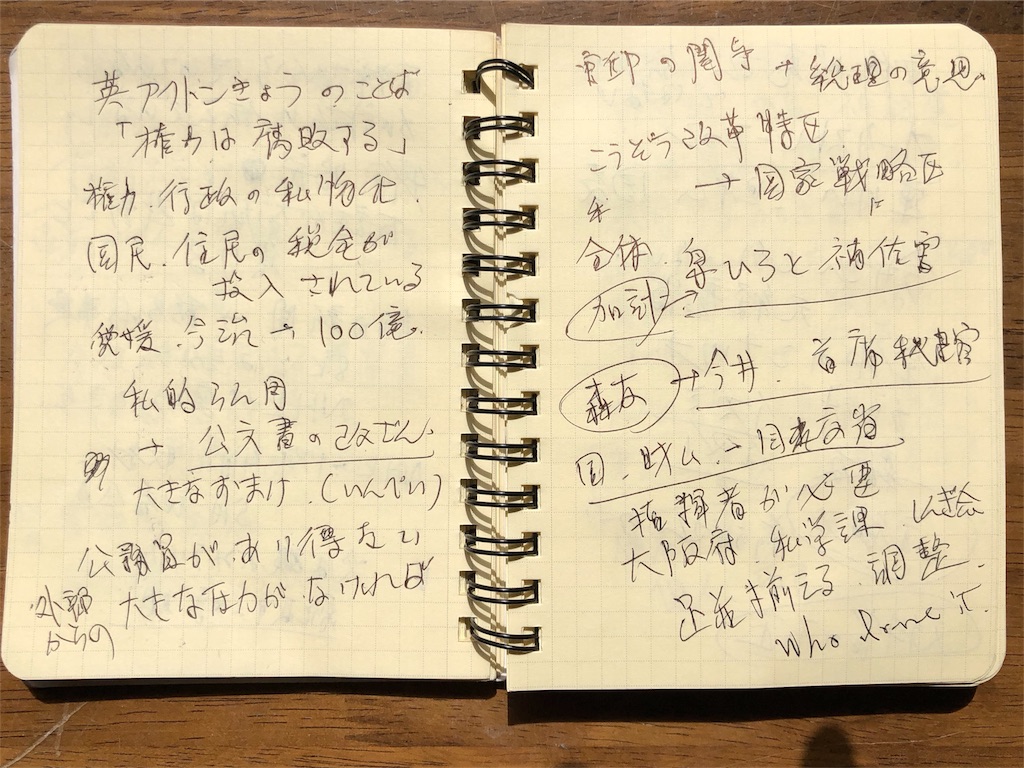 英 アクトンきょうのことば
「権力は腐敗する」
権力.行政の私物化.
国民.住民の税金が
投入されている
愛媛.今治→100億.
私的らん用
+ 公文書の改ざん.
財
大きなおまけ.(いんぺい)
公務員があり得ない
外部からの
大きな圧力がなければ
官邸の関与 + 総理の意思.
こうぞう改革特区
→国家戦略特区
に
全体. 泉ひろと補佐官
加計→
森友→今井. 首席秘書官
国.財ム.→国土交省
指揮者が必要
大阪府.私学課.しんぎ会
足並揃える.調整.
Who done it.